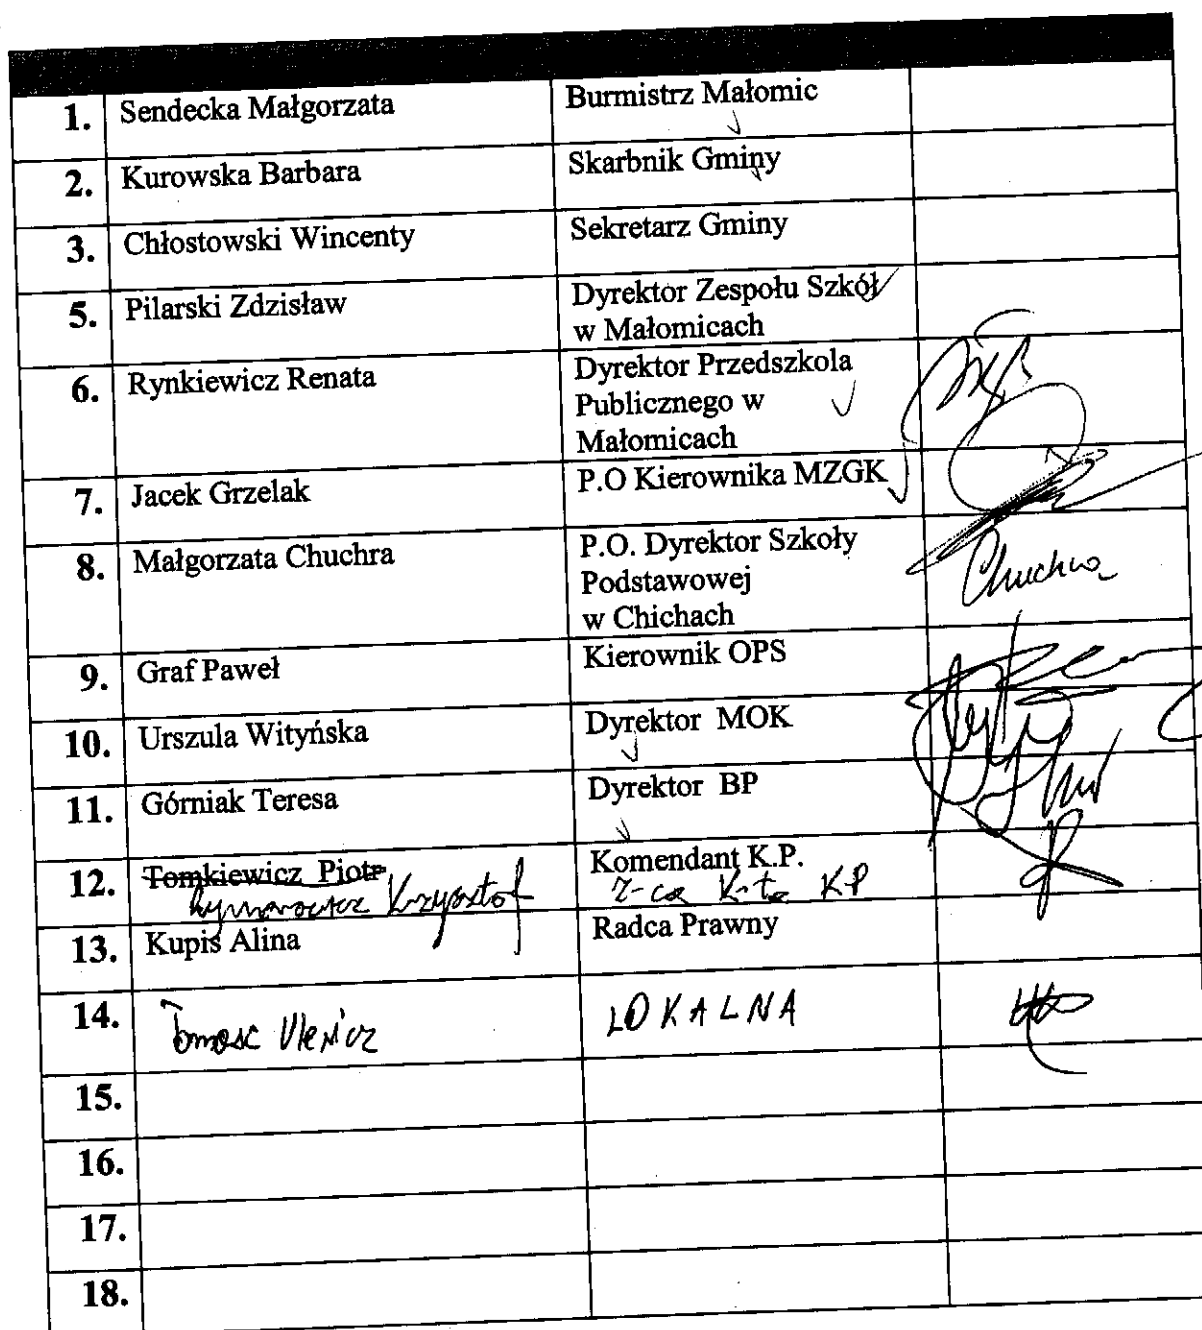 1. Sendecka Małgorzata Burmistrz Małomic
2. Kurowska Barbara Skarbnik Gminy
3. Chłostowski Wincenty Sekretarz Gminy
5. Pilarski Zdzisław Dyrektor Zespołu Szkół
w Małomicach
6. Rynkiewicz Renata Dyrektor Przedszkola
Publicznego w
Małomicach
7. Jacek Grzelak P.O Kierownika MZGK
8. Małgorzata Chuchra P.O. Dyrektor Szkoły
Podstawowej
w Chichach
Chuchra
9. Graf Paweł Kierownik OPS
10. Urszula Wityńska Dyrektor MOK
11. Górniak Teresa Dyrektor BP
12. Tomkiewicz Piotr Komendant K.P.
Krzysztof Z-ca K-ta KP
13. Kupis Alina Radca Prawny
14. LOKALNA
15.
16.
17.
18.